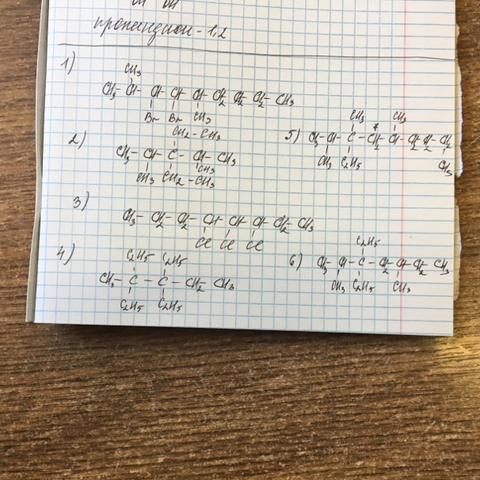 OH OH
пропандиол-1,2
1)
CH3
CH3-CH-CH-CH-CH-CH2-CH2-CH2-CH3
Br Br CH3
2)
CH2-CH3
CH3-CH-C-CH-CH3
CH3
CH3 CH2-CH3
3)
CH3-CH2-CH2-CH-CH-CH-CH2-CH3
Cl Cl Cl
4)
C2H5 C2H5
CH3-C-C-CH2-CH3
C2H5 C2H5
5)
CH3 CH3
CH3-CH-C-CH2-CH-CH2-CH2-CH2
CH3 C2H5
CH3
6)
C2H5
CH3-CH-C-CH2-CH-CH2-CH3
CH3 C2H5 CH3